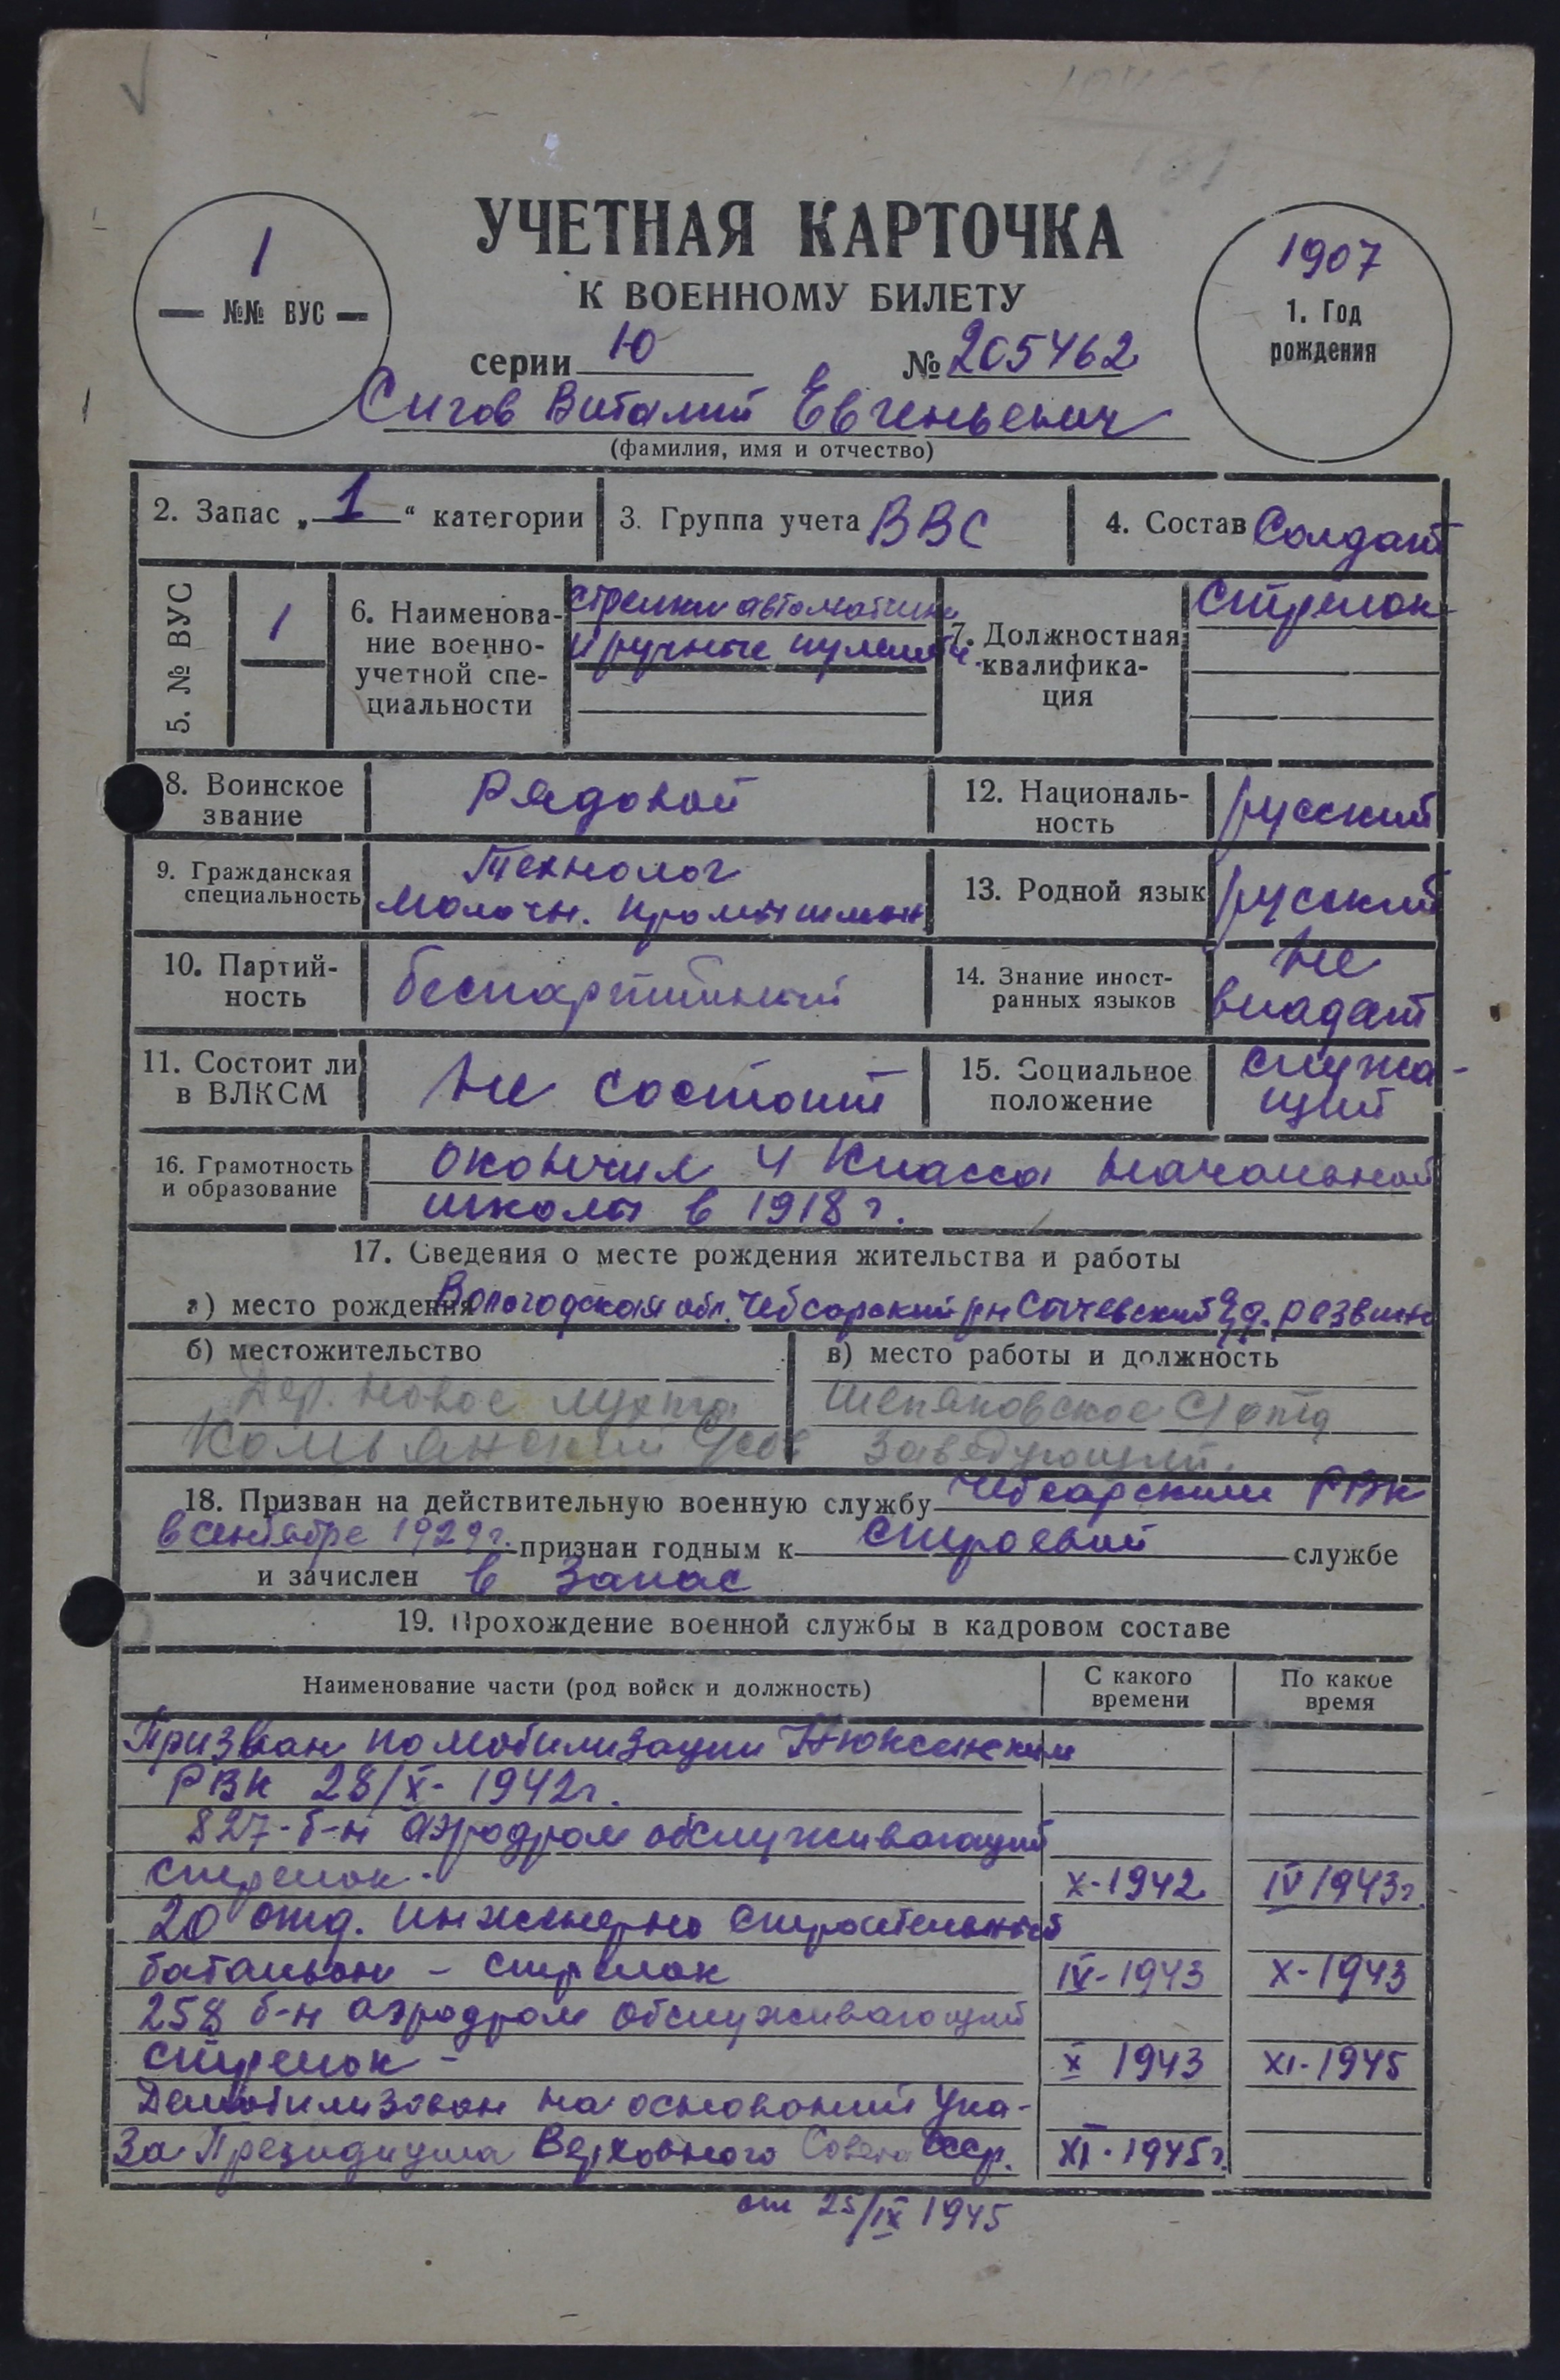 1
№№ ВУС
УЧЕТНАЯ КАРТОЧКА
К ВОЕННОМУ БИЛЕТУ
серии Ю № 205462
1907
1. Год
рождения
Сигов Виталий Евгеньевич
(фамилия, имя и отчество)
2. Запас „1“ категории
3. Группа учета ВВС
4. Состав Солдат
5. № ВУС
1
6. Наименова-
ние военно-
учетной спе-
циальности
стрелки автоматчики
и ручные пулемётч.
7. Должностная
квалифика-
ция
стрелок
8. Воинское
звание
Рядовой
12. Националь-
ность
русский
9. Гражданская
специальность
Технолог
молочн. промышлен
13. Родной язык
русский
10. Партий-
ность
беспартийный
14. Знание иност-
ранных языков
не
владеет
11. Состоит ли
в ВЛКСМ
не состоит
15. Социальное
положение
служа-
щий
16. Грамотность
и образование
окончил 4 класса начальной
школы в 1918 г.
17. Сведения о месте рождения жительства и работы
а) место рождения Вологодская обл. Чебсарский р-н Сычевский д.
б) местожительство
Дер. Новое
в) место работы и должность
заведующий.
18. Призван на действительную военную службу Чебсарским РВК
в сентябре 1929 г. признан годным к строевой службе
и зачислен в запас
19. Прохождение военной службы в кадровом составе
Наименование части (род войск и должность)
С какого
времени
По какое
время
Призван по мобилизации Нюксенским
РВК 28/X-1942г.
827-б-н аэродром обслуживающий
стрелок. X-1942 IV 1943г.
20 отд. инженерно строительный
батальон - стрелок IV-1943 X-1943
258 б-н аэродром обслуживающий
стрелок - X 1943 XI-1945
Демобилизован на основании Ука-
за Президиума Верховного Совета СССР. XI-1945г.
от 25/IX 1945